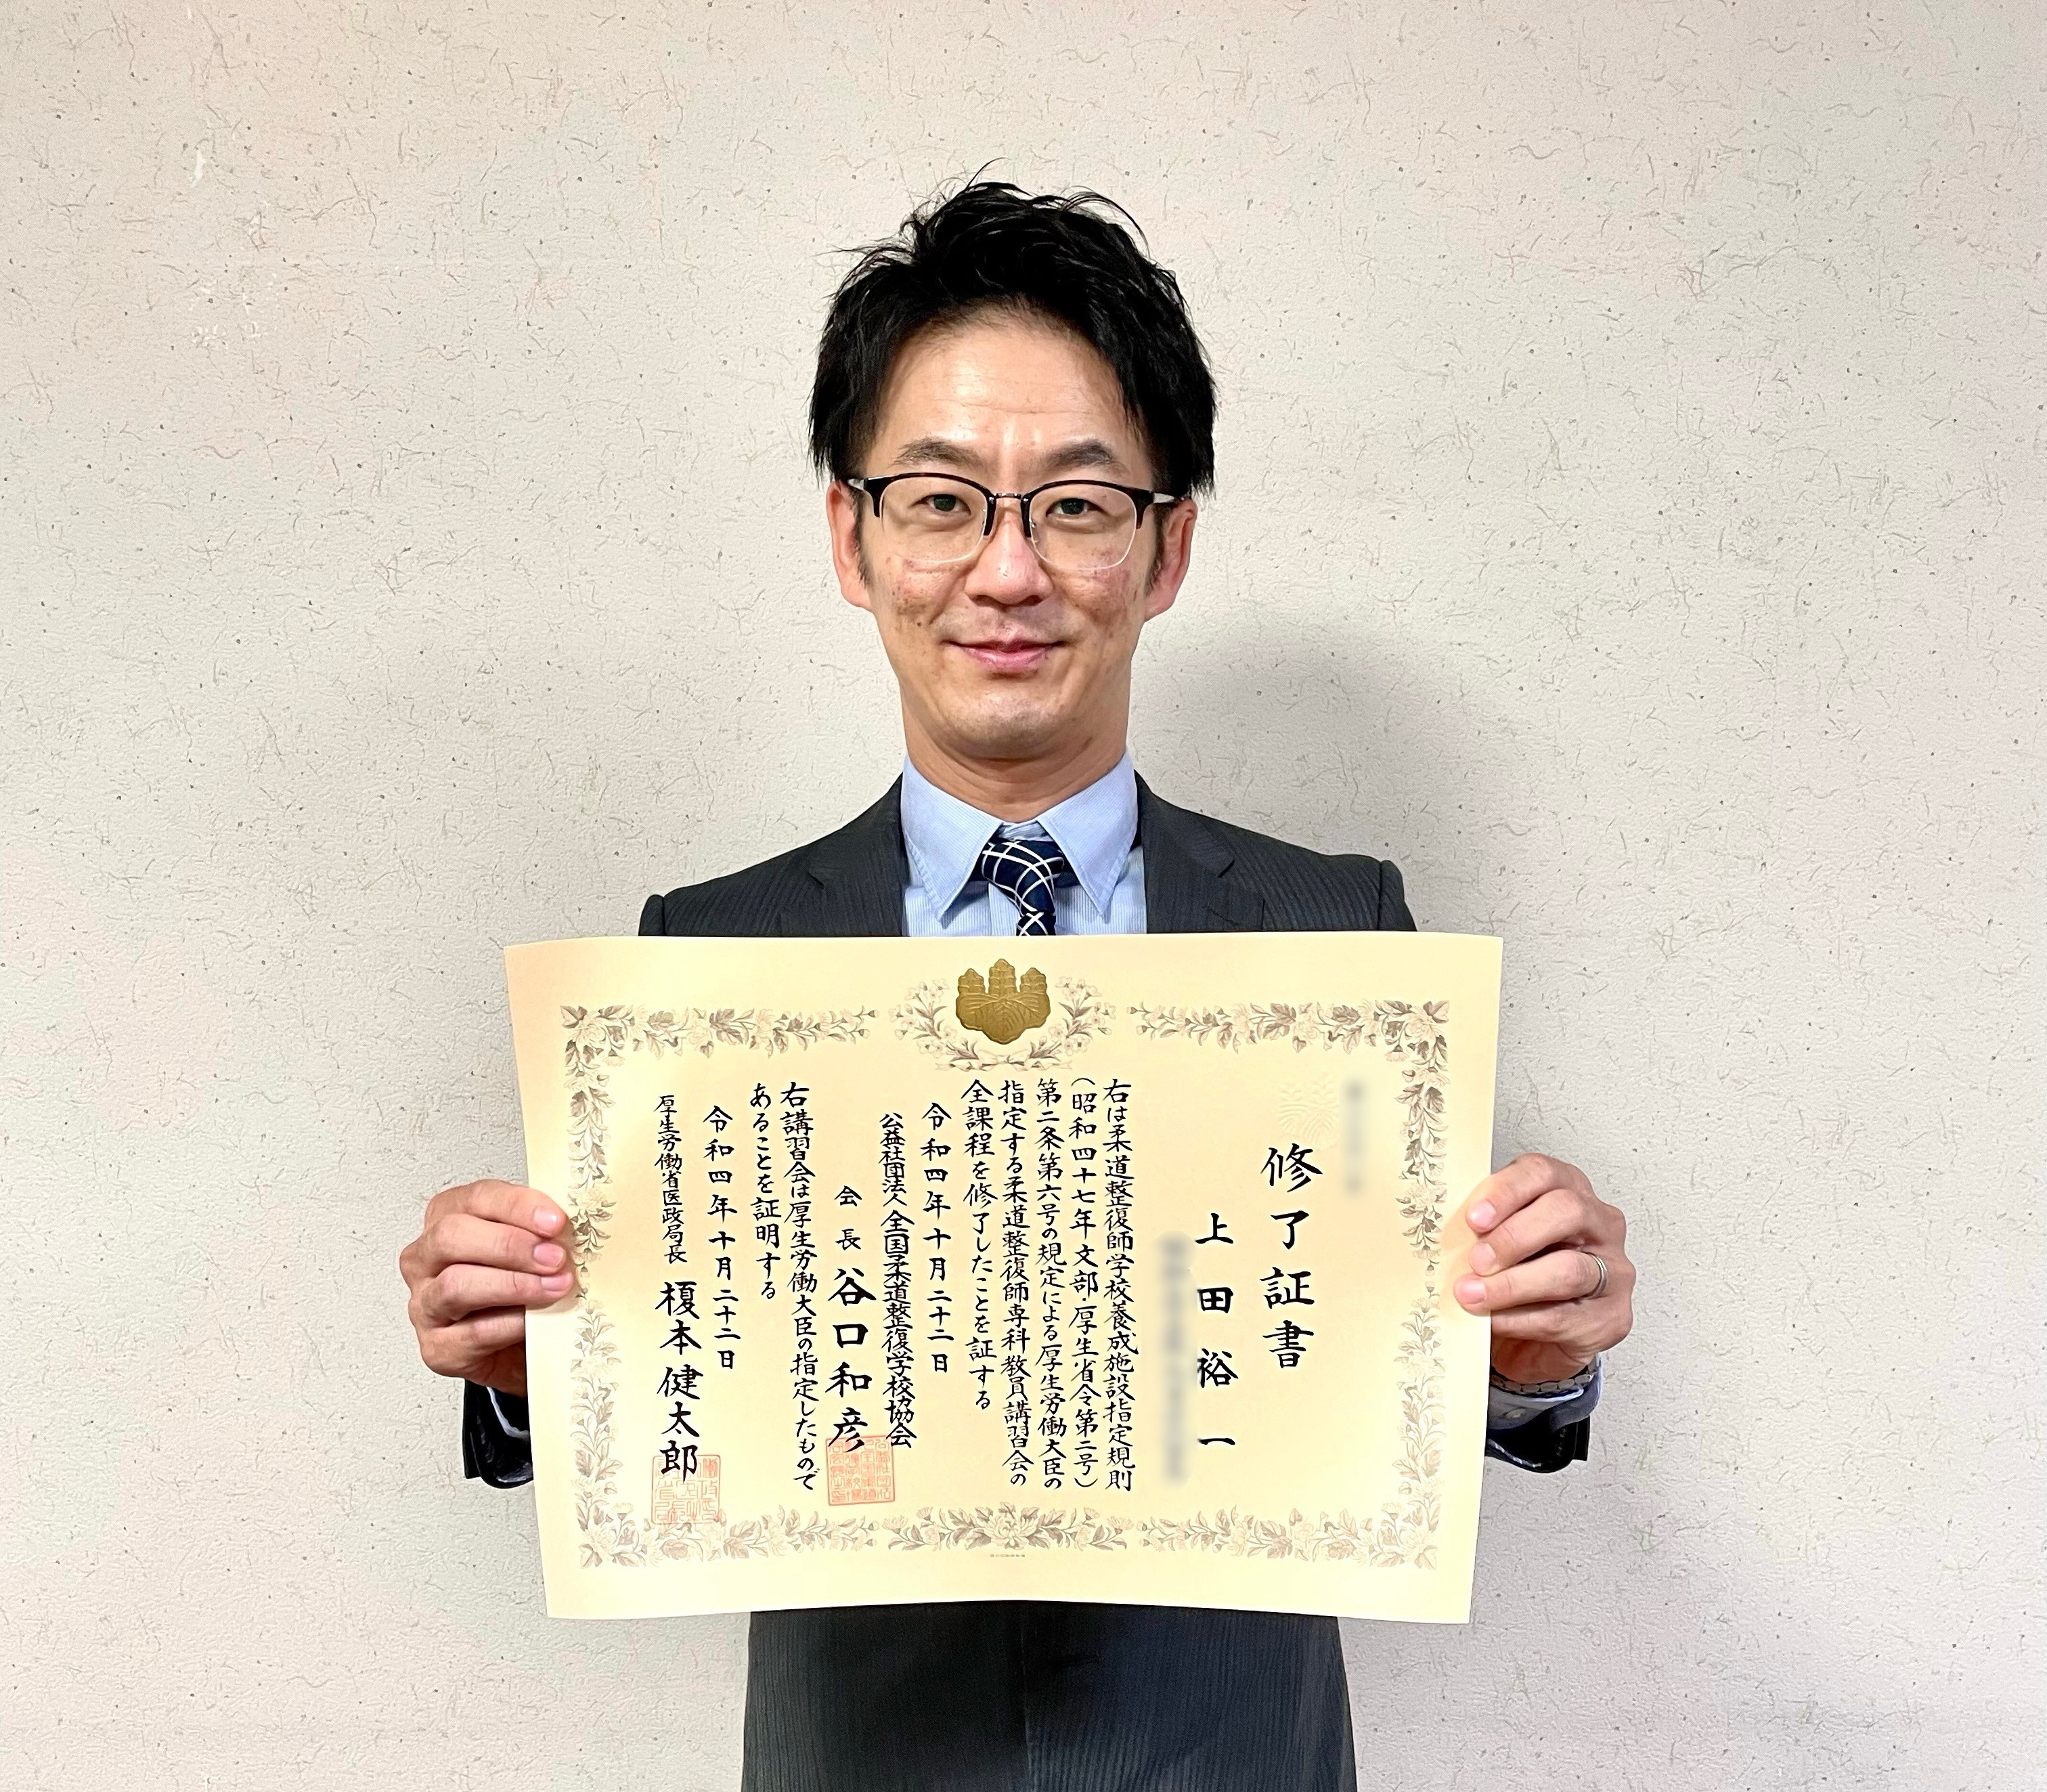 修了証書
上田裕一
右は柔道整復師学校養成施設指定規則
（昭和四十七年文部・厚生省令第二号）
第二条第六号の規定による厚生労働大臣の
指定する柔道整復師専科教員講習会の
全課程を修了したことを証する
令和四年十月二十二日
公益社団法人全国柔道整復学校協会
会長谷口和彦
右講習会は厚生労働大臣の指定したもので
あることを証明する
令和四年十月二十二日
厚生労働省医政局長 榎本健太郎